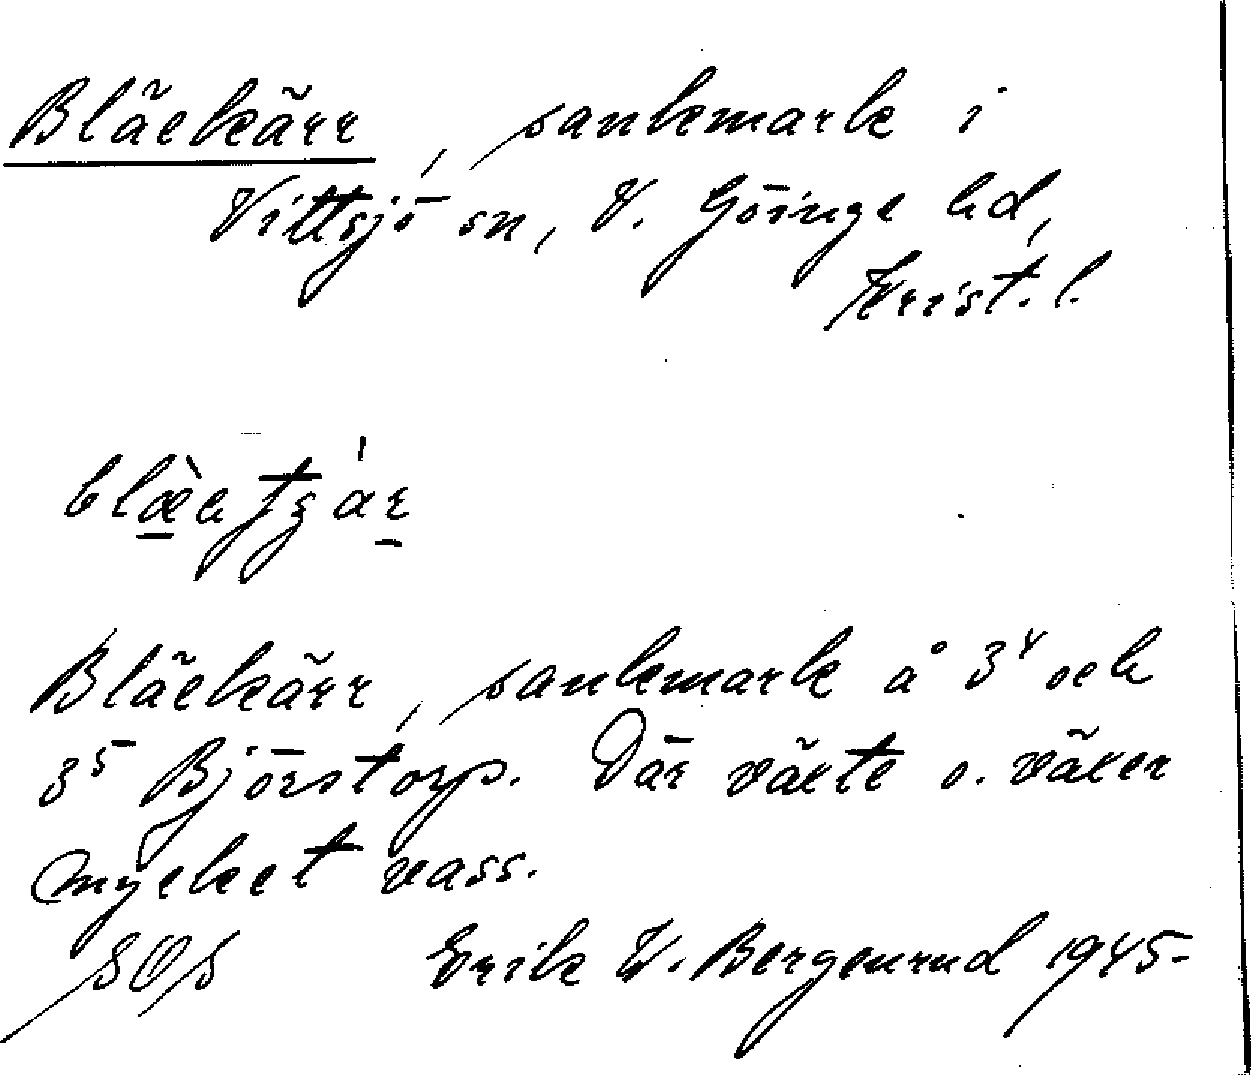 Bläckärr, sankmark i
Vittsjö sn, V. Göinge hd,
Krist. l.
Bläckärr, sankmark å 3⁴ och
3⁵ Björstorp. Där växte o. växer
mycket vass.
SOS Erik W. Bergenrud 1945